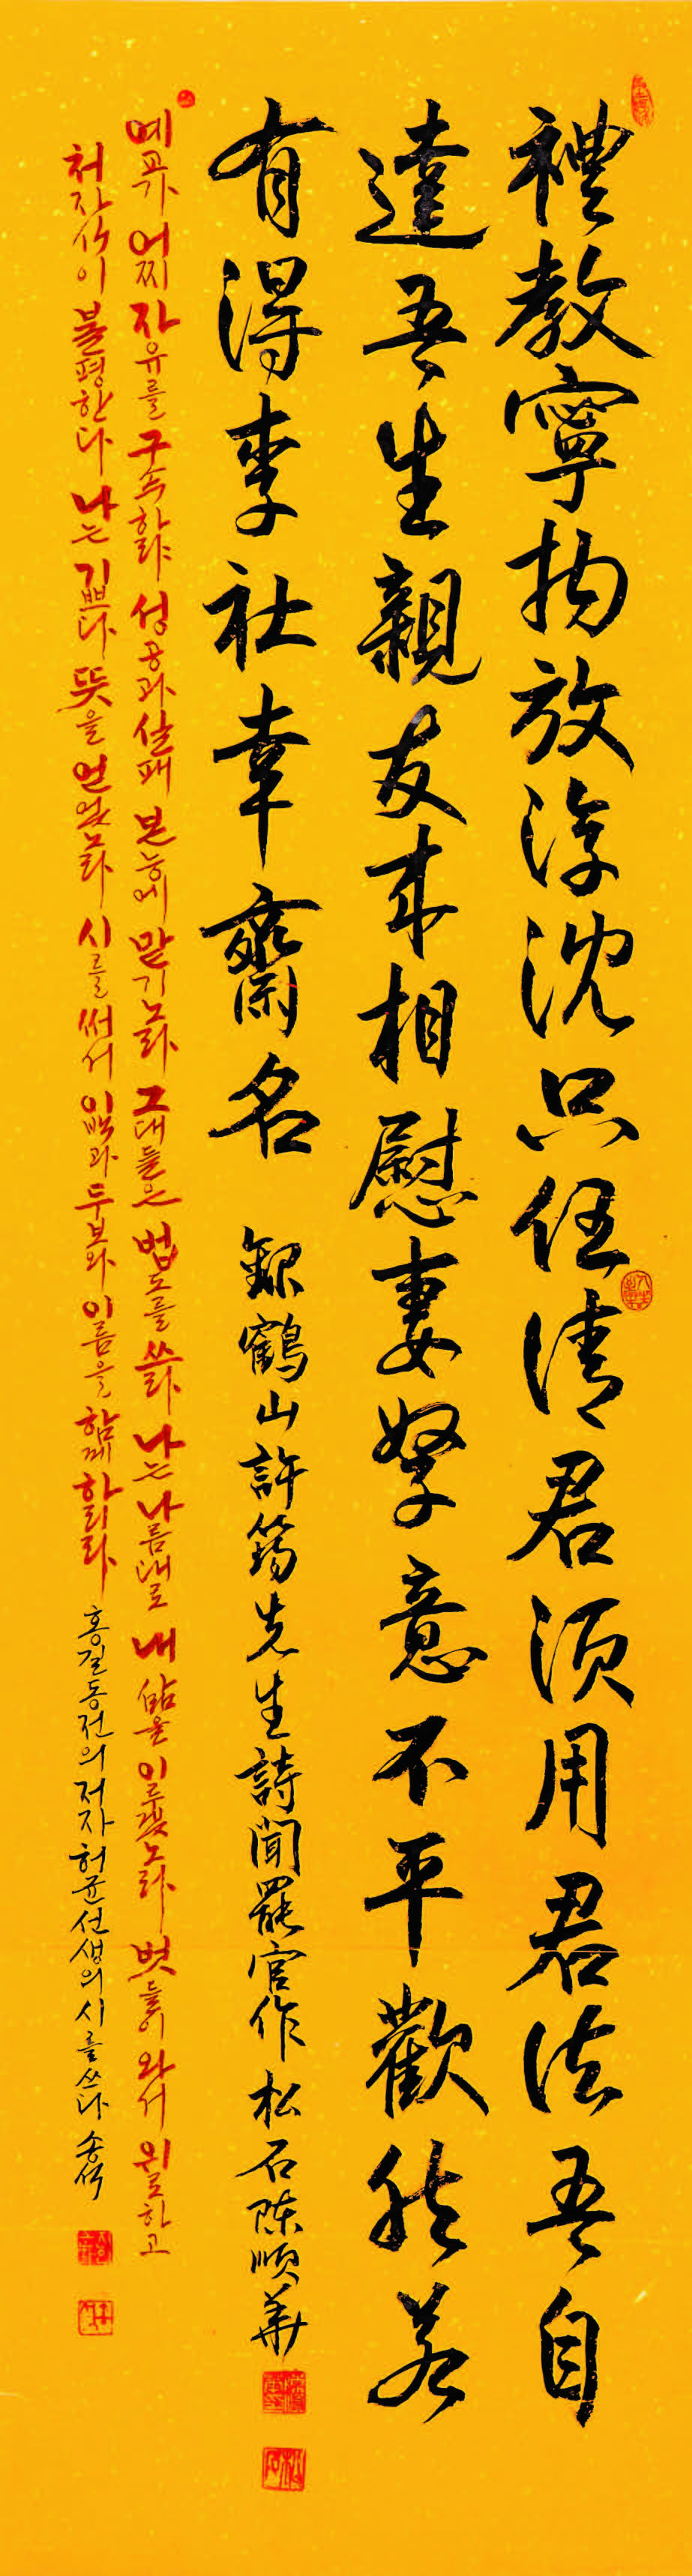 禮教寧拘放浮沈只任情君須用君法吾自
達吾生親友來相慰妻孥意不平歡然若
有得李杜幸齊名 錄鶴山許筠先生詩聞罷官作 松石陳順華
예교가 어찌 자유를 구속하랴 성공과 실패 본능에 맡기노라 그대들은 법도를 쓰라 나는 나름대로 내 삶을 이루겠노라 벗들이 와서 위로하고
처자식이 불평한다 나는 기쁘다 뜻을 얻었노라 시를 써서 이백과 두보와 이름을 함께 하리라 홍길동전의 저자 허균선생의 시를 쓰다 송석